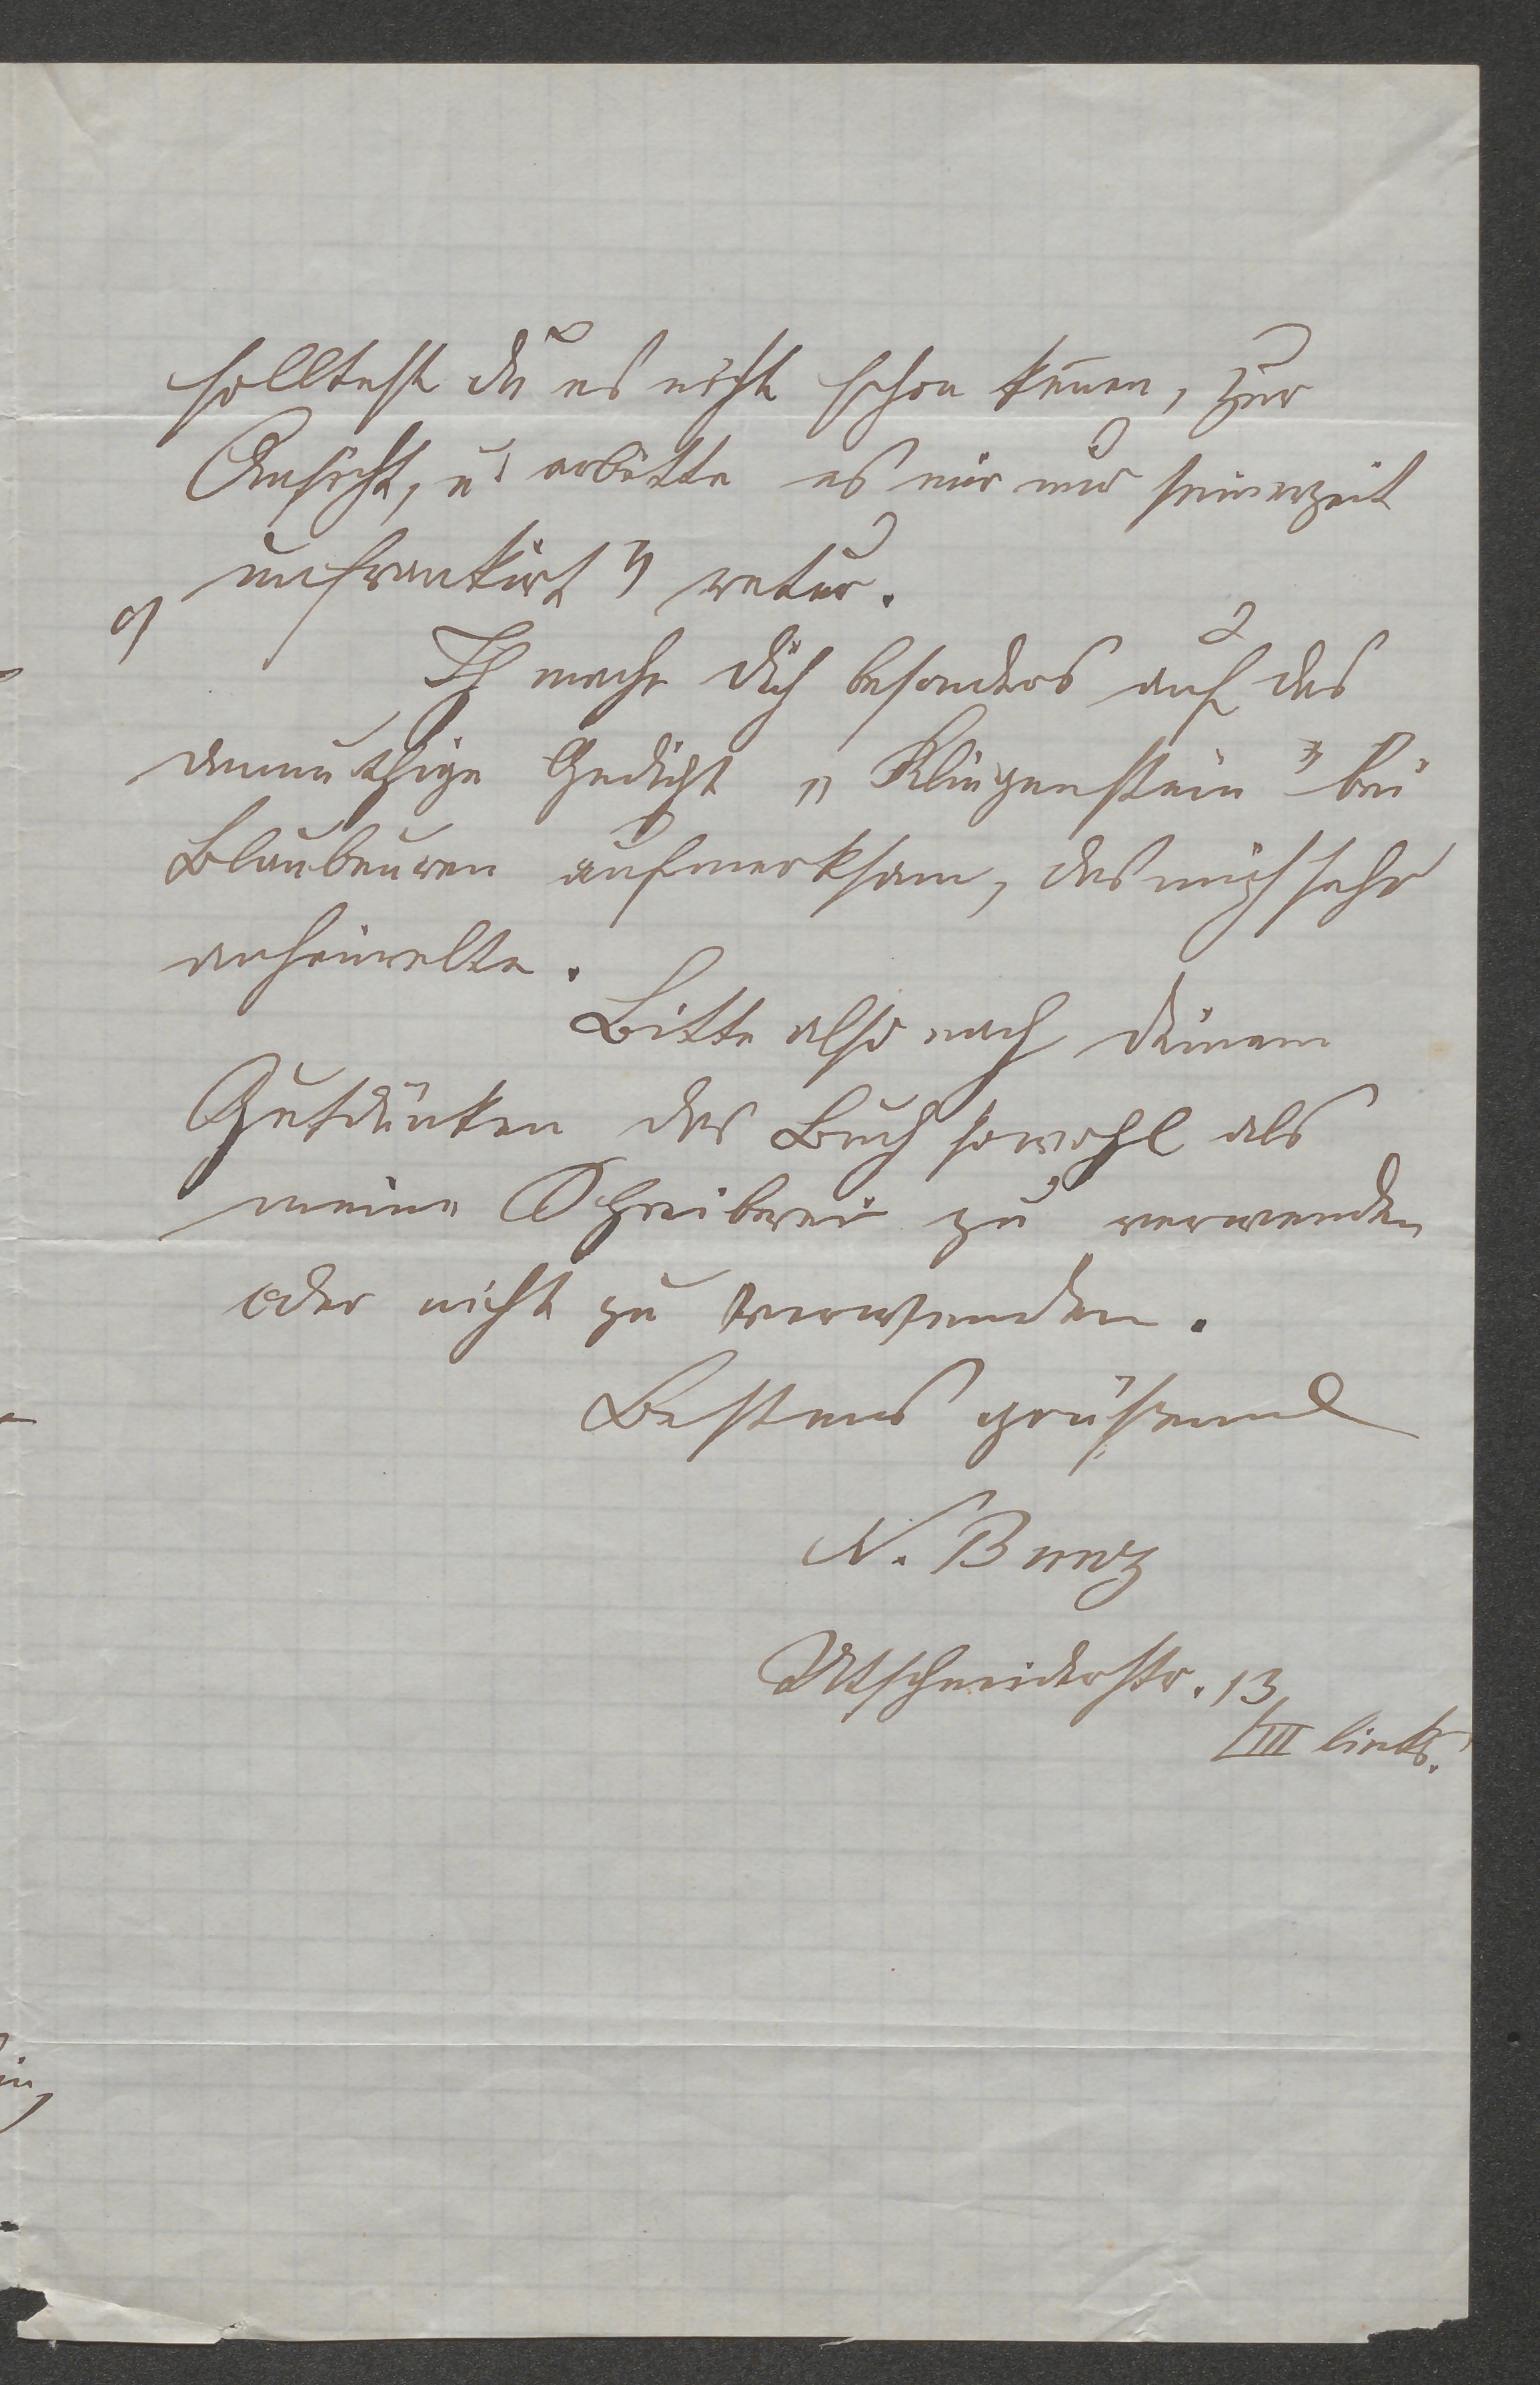 solltest du es nicht schon kennen, zur
Ansicht, u. erbitte es mir nur seinerzeit
„unfrankirt" retur.
Ich mache dich besonders auf das
anmuthige Gedicht „Klingenstein" bei
Blaubeuren aufmerksam, das mich sehr
anheimelte.
Bitte also nach deinem
Gutdünken das Buch sowohl als
meine Schreiberei zu verwenden
oder nicht zu verwenden.
Bestens grüßend
N.
Utschneiderstr. 13/
III links.